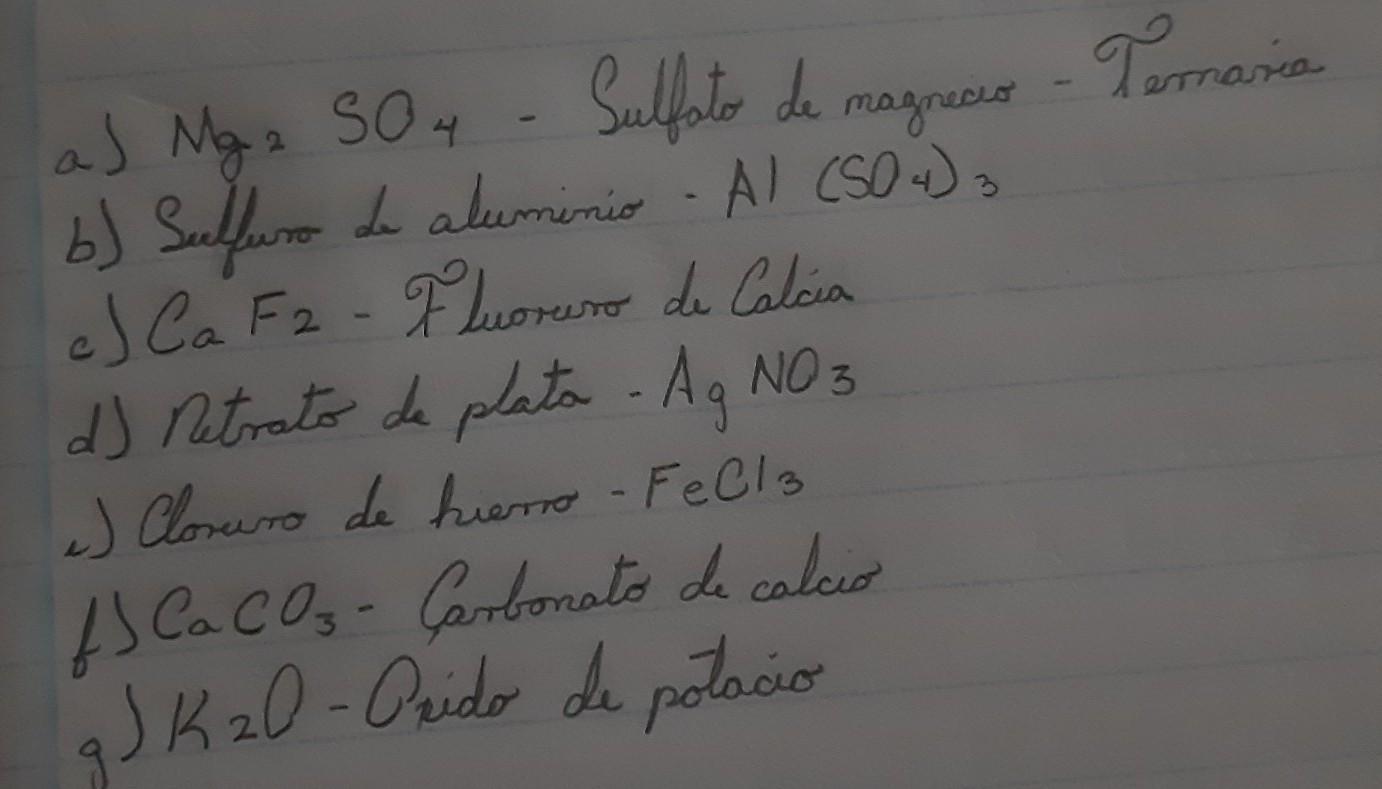 a) Mg2 SO4 - Sulfato de magnecio - Ternaria
b) Sulfuro de aluminio - Al (SO4)3
c) Ca F2 - Fluoruro de Calcia
d) Nitrato de plata - Ag NO3
e) Cloruro de hierro - FeCl3
f) CaCO3 - Carbonato de calcio
g) K2O - Oxido de potacio